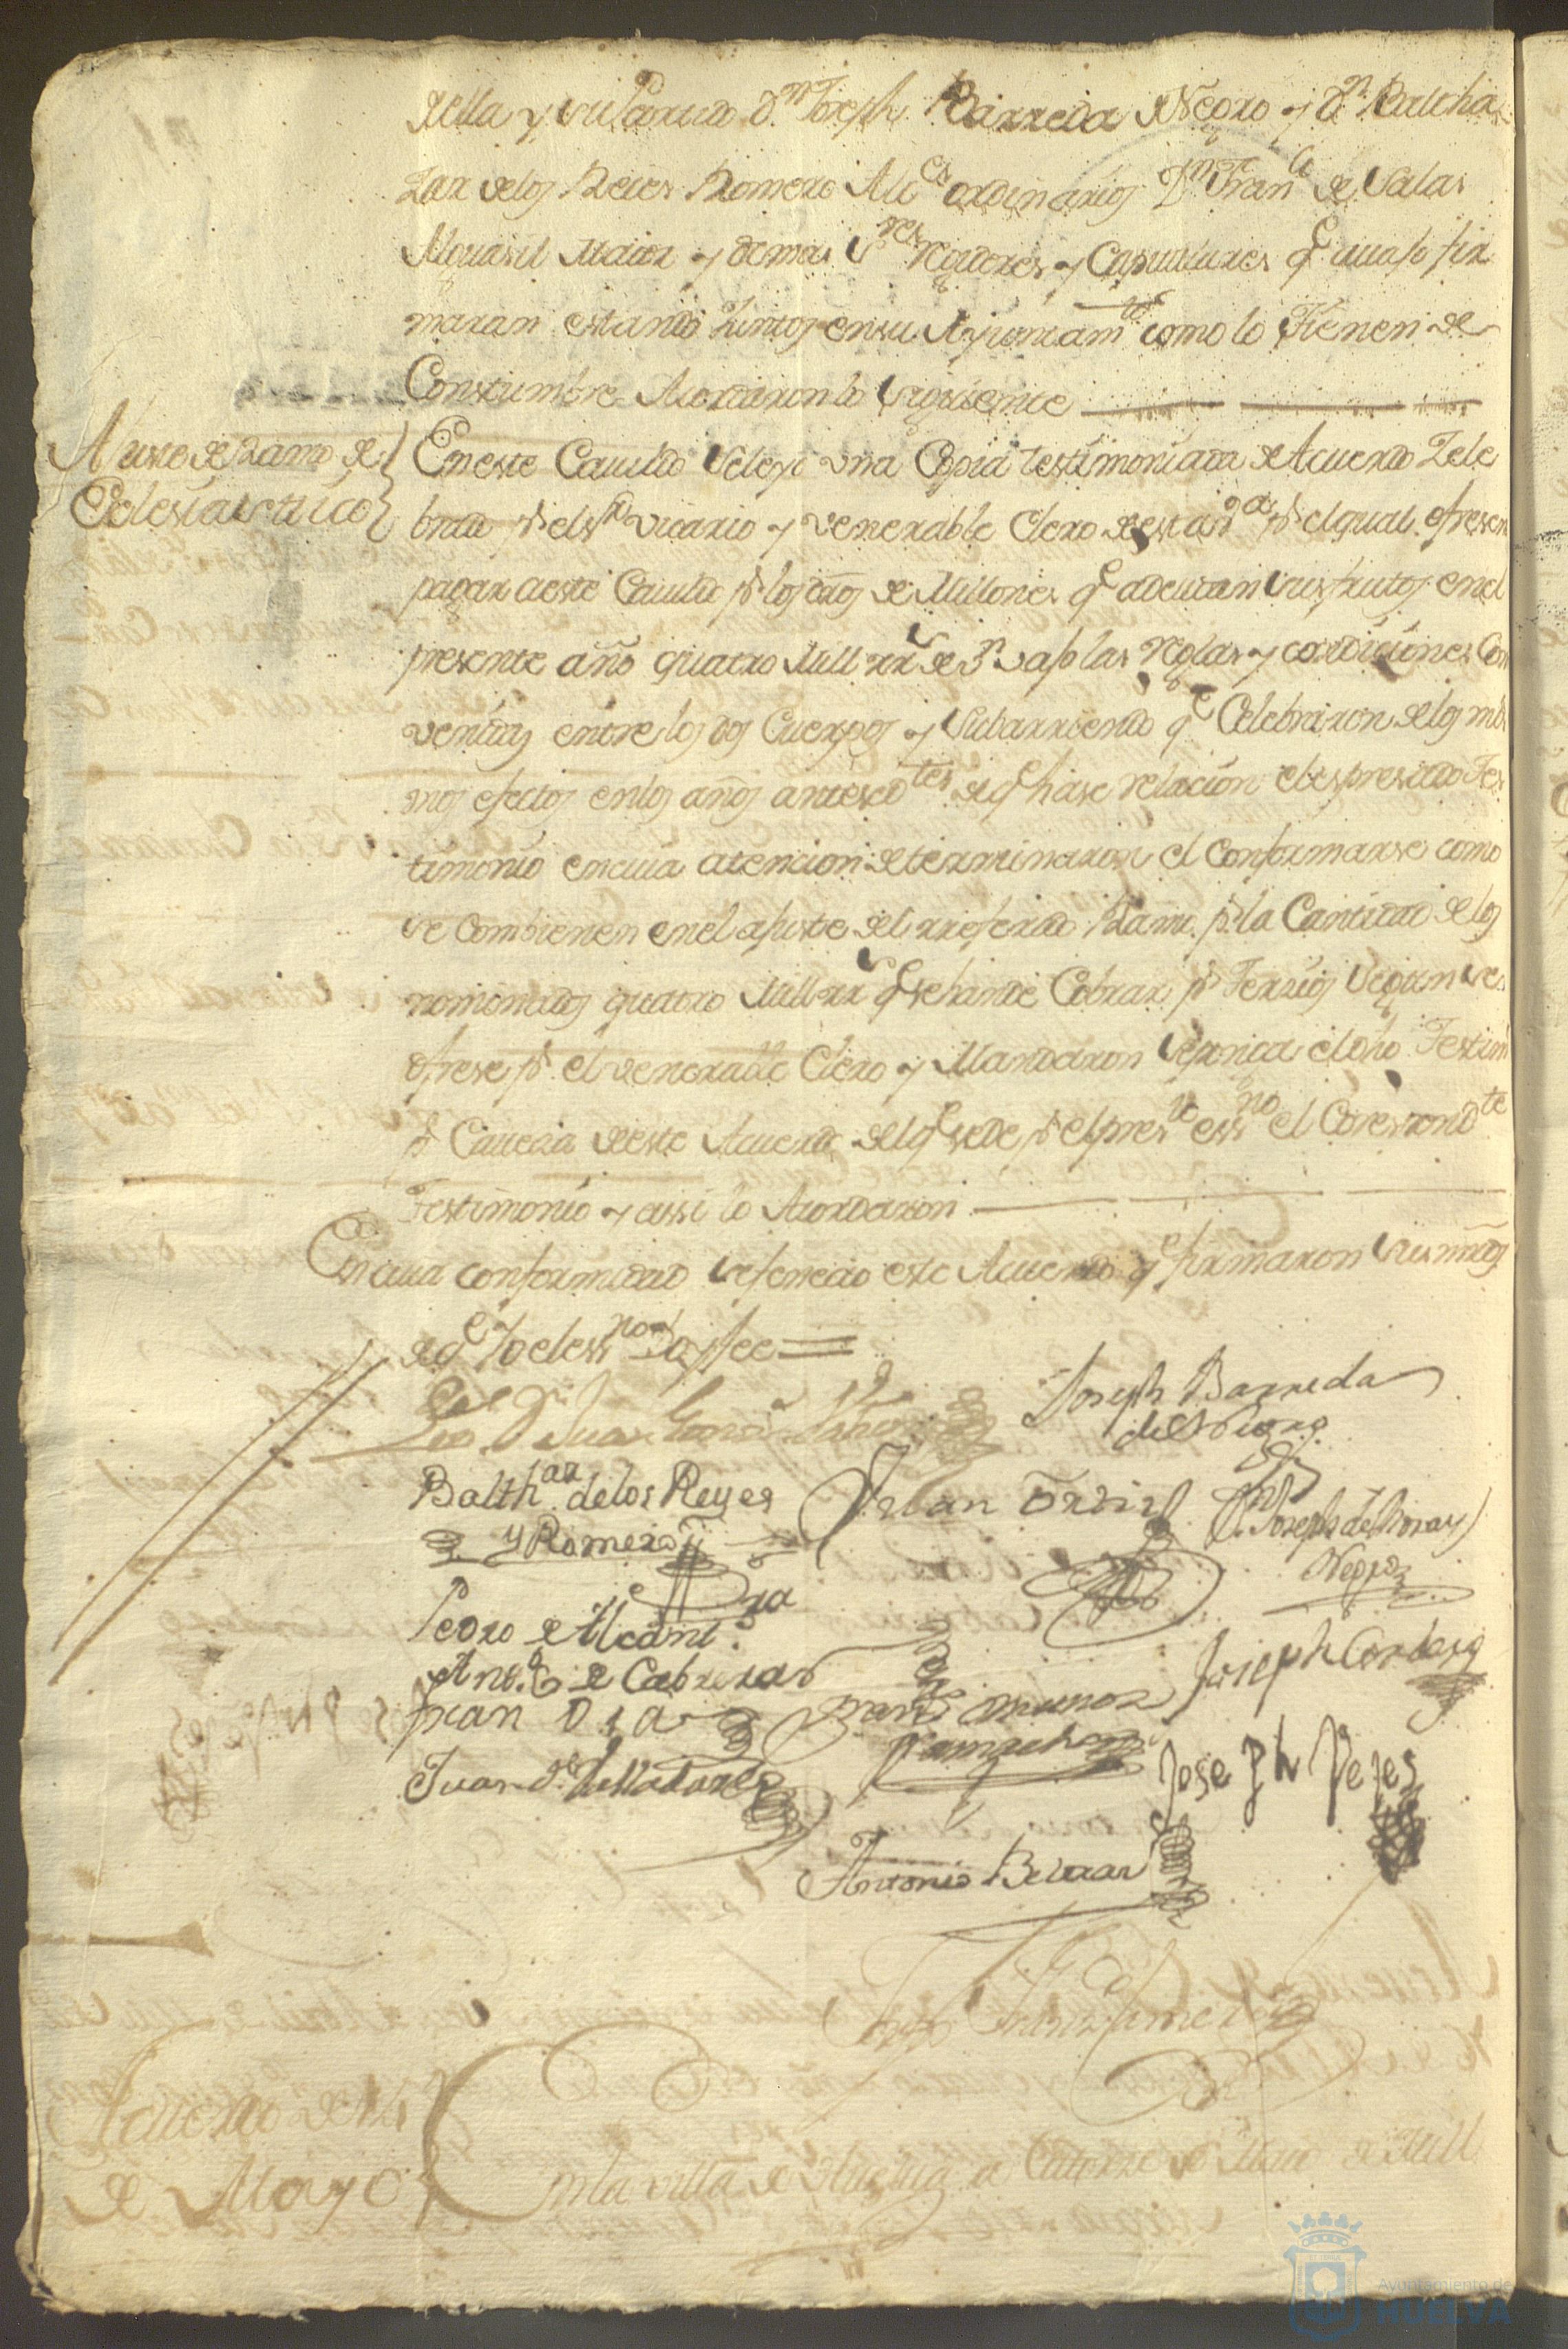 della y su Partido Dn Joseph Barreda de Negro y Dn Baltha
zar de los Reies Romero Alces ordinarios Dn Franco de Salas
Alguasil Maior y demas Sres Regidores y Capitulares qe avajo fir
maran estando Juntos en su Ayuntamto como lo tienen de
Constumbre Acordaron lo siguiente
Ajuste de Ramo de
Eclesiastico
En este Cavildo se leyo una Copia testimoniada de Acuerdo Zele
brado pr el Sr Vicario y venerable Clero de esta va pr el qual ofresen
pagar a este Cavildo pr los dros de Millones qe adeudan sus frutos en el
presente año quatro Mill rrs de vn vajo las reglas y condiciones Con
venidas entre los dos Cuerpos y Subarriendo qe Celebraron de los mis
mos efectos en los años antesedtes de qe hase relacion el espresado Tes
timonio en cuia atencion determinaron el conformarse como
se combienen en el ajuste del rreferido Ramo pr la Cantidad de los
nominados quatro Mill rrs qe se han de Cobrar pr Terzios segun se
ofrese pr el venerable Clero y Mandaron se ponga el dho Testimo
pr Caveza de este Acuerdo del qe se de pr el preste essno el Correspondte
Testimonio y assi lo Acordaron
En cuia conformidad se fenecio este Acuerdo qe firmaron sus mrds
de qe Yo el essno Doy fee
Joseph Barreda
de Negro
Balthar de los Reyes
y Romero
Joseph de
Negro
Pedro de Alcantra
Anto de Cabrera
Juan Dia
Muñoz
Joseph Cordero
Juan de Valladares
Joseph Perez
Antonio Beltran
Acuerdo de 14
de Mayo
En la villa de Huelva a Catorze de Maio de Mill
Ayuntamiento de
HUELVA